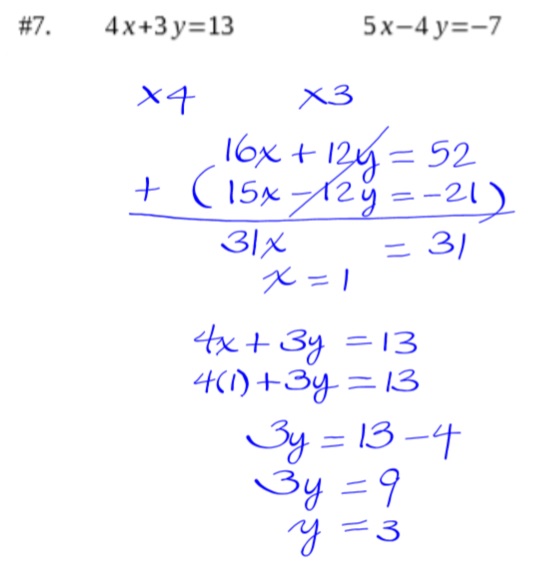 #7. 4x+3y=13 5x−4y=−7
×4 ×3
16x + 12y = 52
+ (15x − 12y = −21)
31x = 31
x = 1
4x + 3y = 13
4(1) + 3y = 13
3y = 13 − 4
3y = 9
y = 3